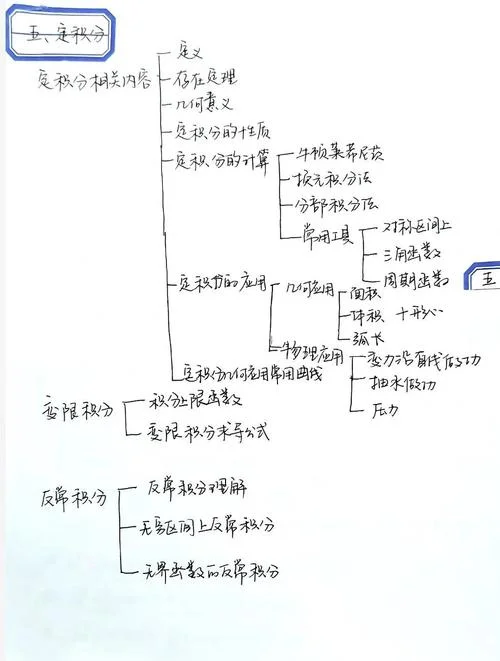 五、定积分
定积分相关内容
定义
存在定理
几何意义
定积分的性质
定积分的计算
牛顿莱希尼茨
换元积分法
分部积分法
常用工具
对称区间上
三角函数
周期函数
定积分的应用
几何应用
面积
体积 + 形心
弧长
物理应用
变力沿直线做功
抽水做功
压力
定积分几何应用常用曲线
变限积分
积分上限函数
变限积分求导公式
反常积分
反常积分理解
无穷区间上反常积分
无界函数的反常积分
五